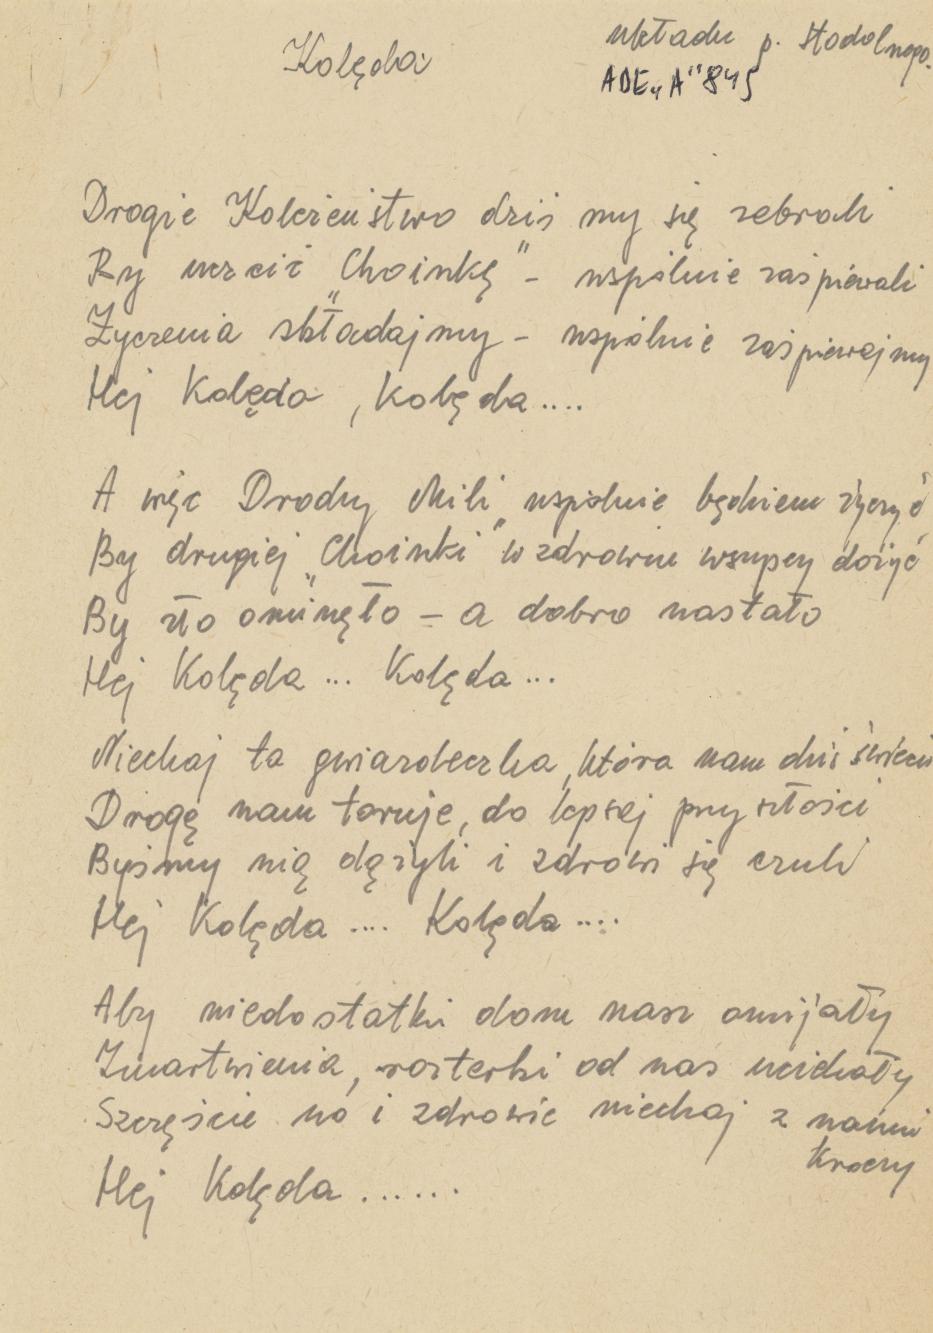 Kolęda
układu p. Stodolnego.
ADE "A" 845
Drogie Koleżeństwo dziś my się zebrali
By uczcić "Choinkę" - wspólnie zaśpiewali
Życzenia składajmy - wspólnie zaśpiewajmy
Hej Kolęda, kolęda....
A więc Drodzy Mili wspólnie będziem życzyć
By drugiej "Choinki" w zdrowiu wszyscy dożyć
By zło ominęło - a dobro nastało
Hej Kolęda ... Kolęda ...
Niechaj ta gwiazdeczka, która nam dziś świeci
Drogę nam toruje, do lepszej przyszłości
Byśmy nią dążyli i zdrowi się czuli
Hej Kolęda .... Kolęda ....
Aby niedostatki dom nasz omijały
Zmartwienia, rozterki od nas uciekały
Szczęście no i zdrowie niechaj z nami
kroczy
Hej Kolęda ......